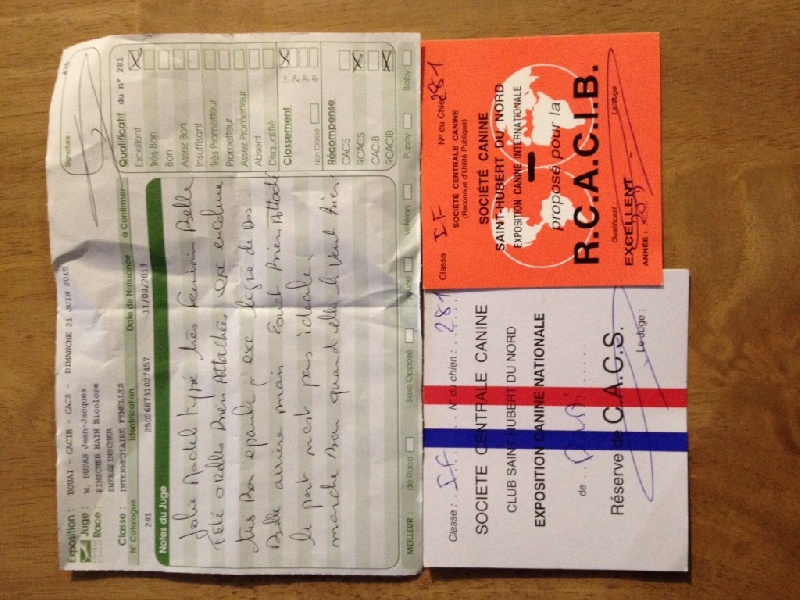 Exposition : DOUAI - CACIB - CACS - DIMANCHE 21 JUIN 2015
Juge : M. DUPAS Jean-Jacques
Race : PINSCHER NAIN Bicolore
ZWERGPINSCHER
Classe : INTERMEDIAIRE FEMELLES
N° Catalogue Identification Date de Naissance à Confirmer
281 250268731027457 11/09/2013
Signature :
Notes du Juge
Jolie Modèle typé très Féminin Belle
Tête oreilles Bien Attachées exc encolure
très Bon épaule, exc ligne de Dos
Belle arrière main Fouet Bien Attaché
le port n'est pas idéale.
marche Bon quand elle le veut Bien
Qualificatif du n° 281
Excellent
Très Bon
Bon
Assez Bon
Insuffisant
Très Prometteur
Prometteur
Assez Prometteur
Absent
Disqualifié
Classement
1 2 3 4
Non Classé
Récompense
CACS
RCACS
CACIB
RCACIB
MEILLEUR : de Race Sexe Opposé Jeune Vétéran Puppy Baby
Classe : I.F N° du Chien 281
SOCIÉTÉ CENTRALE CANINE
(Reconnue d'Utilité Publique)
SOCIÉTÉ CANINE
SAINT-HUBERT DU NORD
EXPOSITION CANINE INTERNATIONALE
proposé pour la
R.C.A.C.I.B.
Qualificatif Le Juge
EXCELLENT
ANNÉE : 2015
Classe : I.F N° du chien : 281
SOCIETE CENTRALE CANINE
CLUB SAINT-HUBERT DU NORD
EXPOSITION CANINE NATIONALE
de
Réserve de C.A.C.S.
Le Juge :